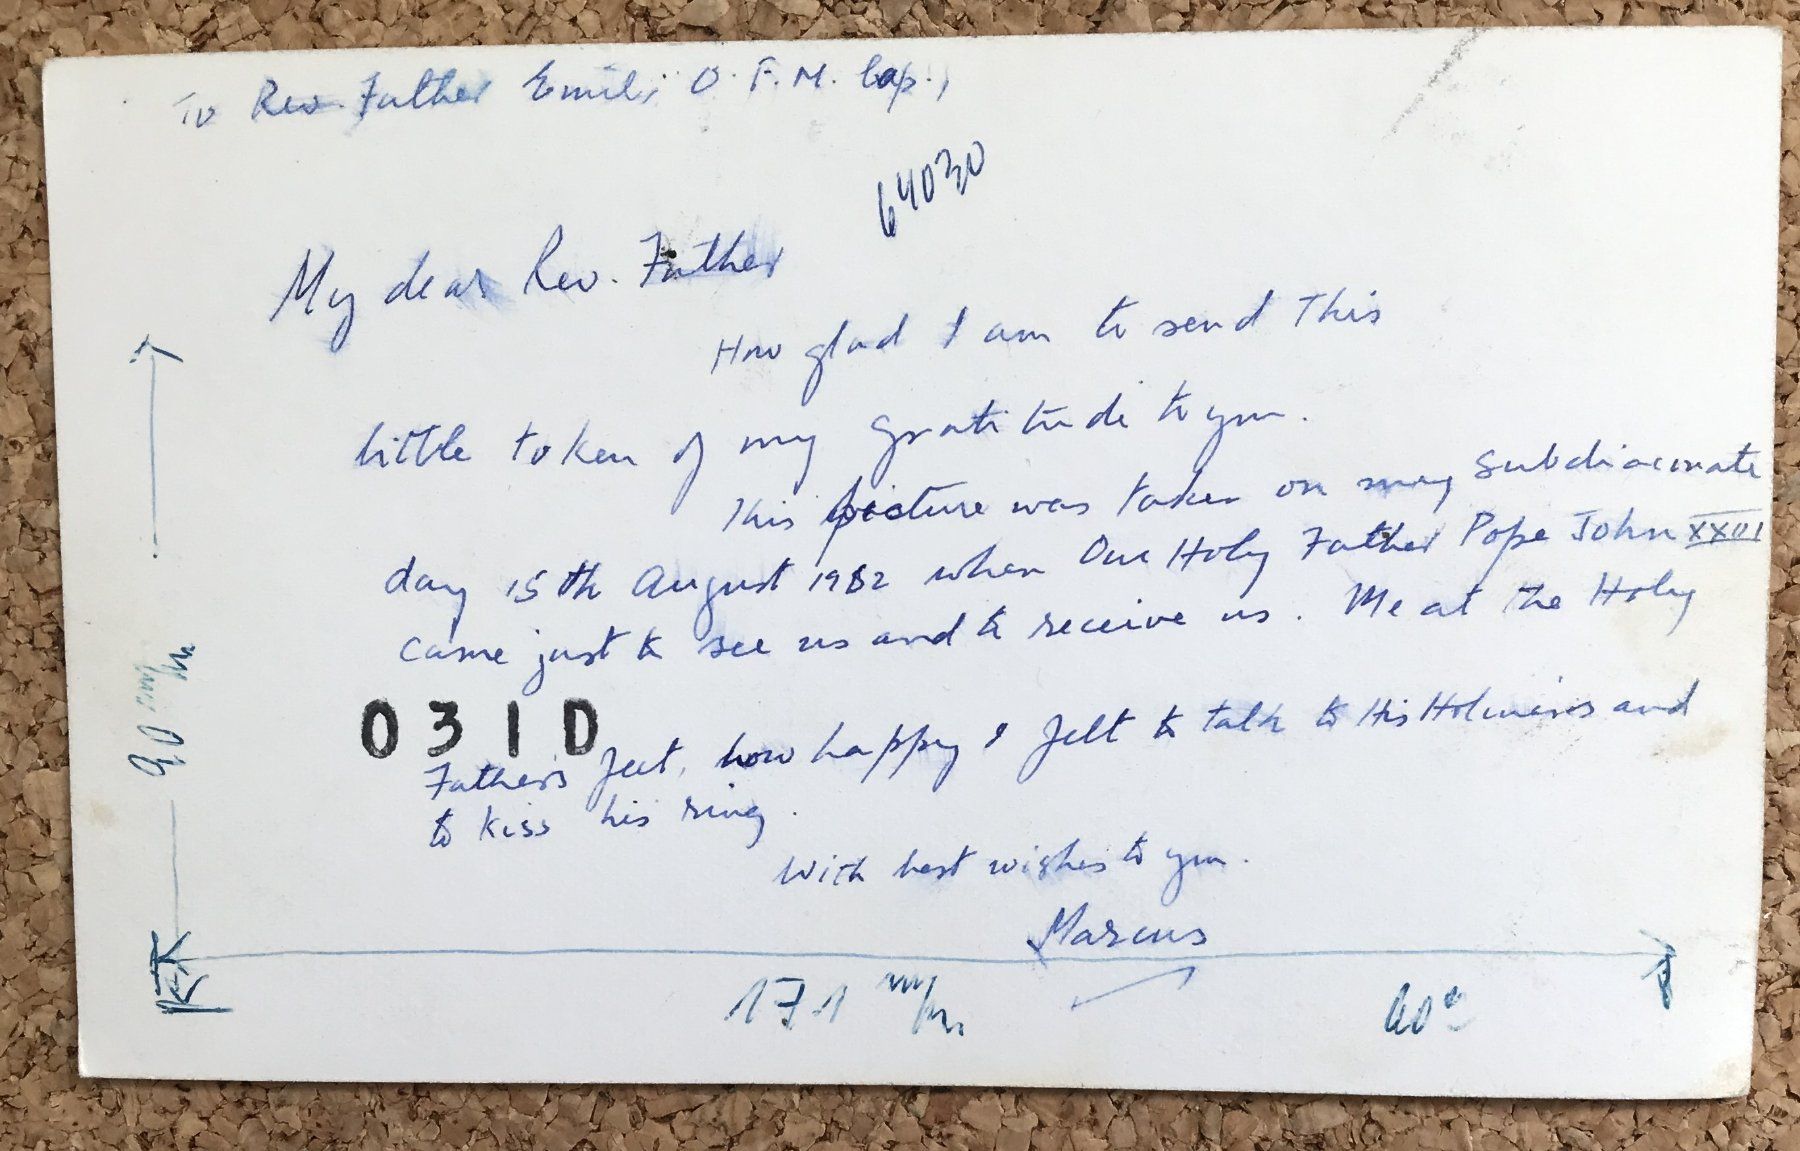 To Rev. Father Emili O. F. M. Cap.,
64030
My dear Rev. Father
How glad I am to send This
little token of my gratitude to you.
This picture was taken on my subdiaconate
day 15th August 1962 when Our Holy Father Pope John XXIII
came just to see us and to receive us. Me at the Holy
Father's feet, how happy I felt to talk to His Holiness and
to kiss his ring.
With best wishes to you.
Marcus
0 3 1 D
171 m/m
60